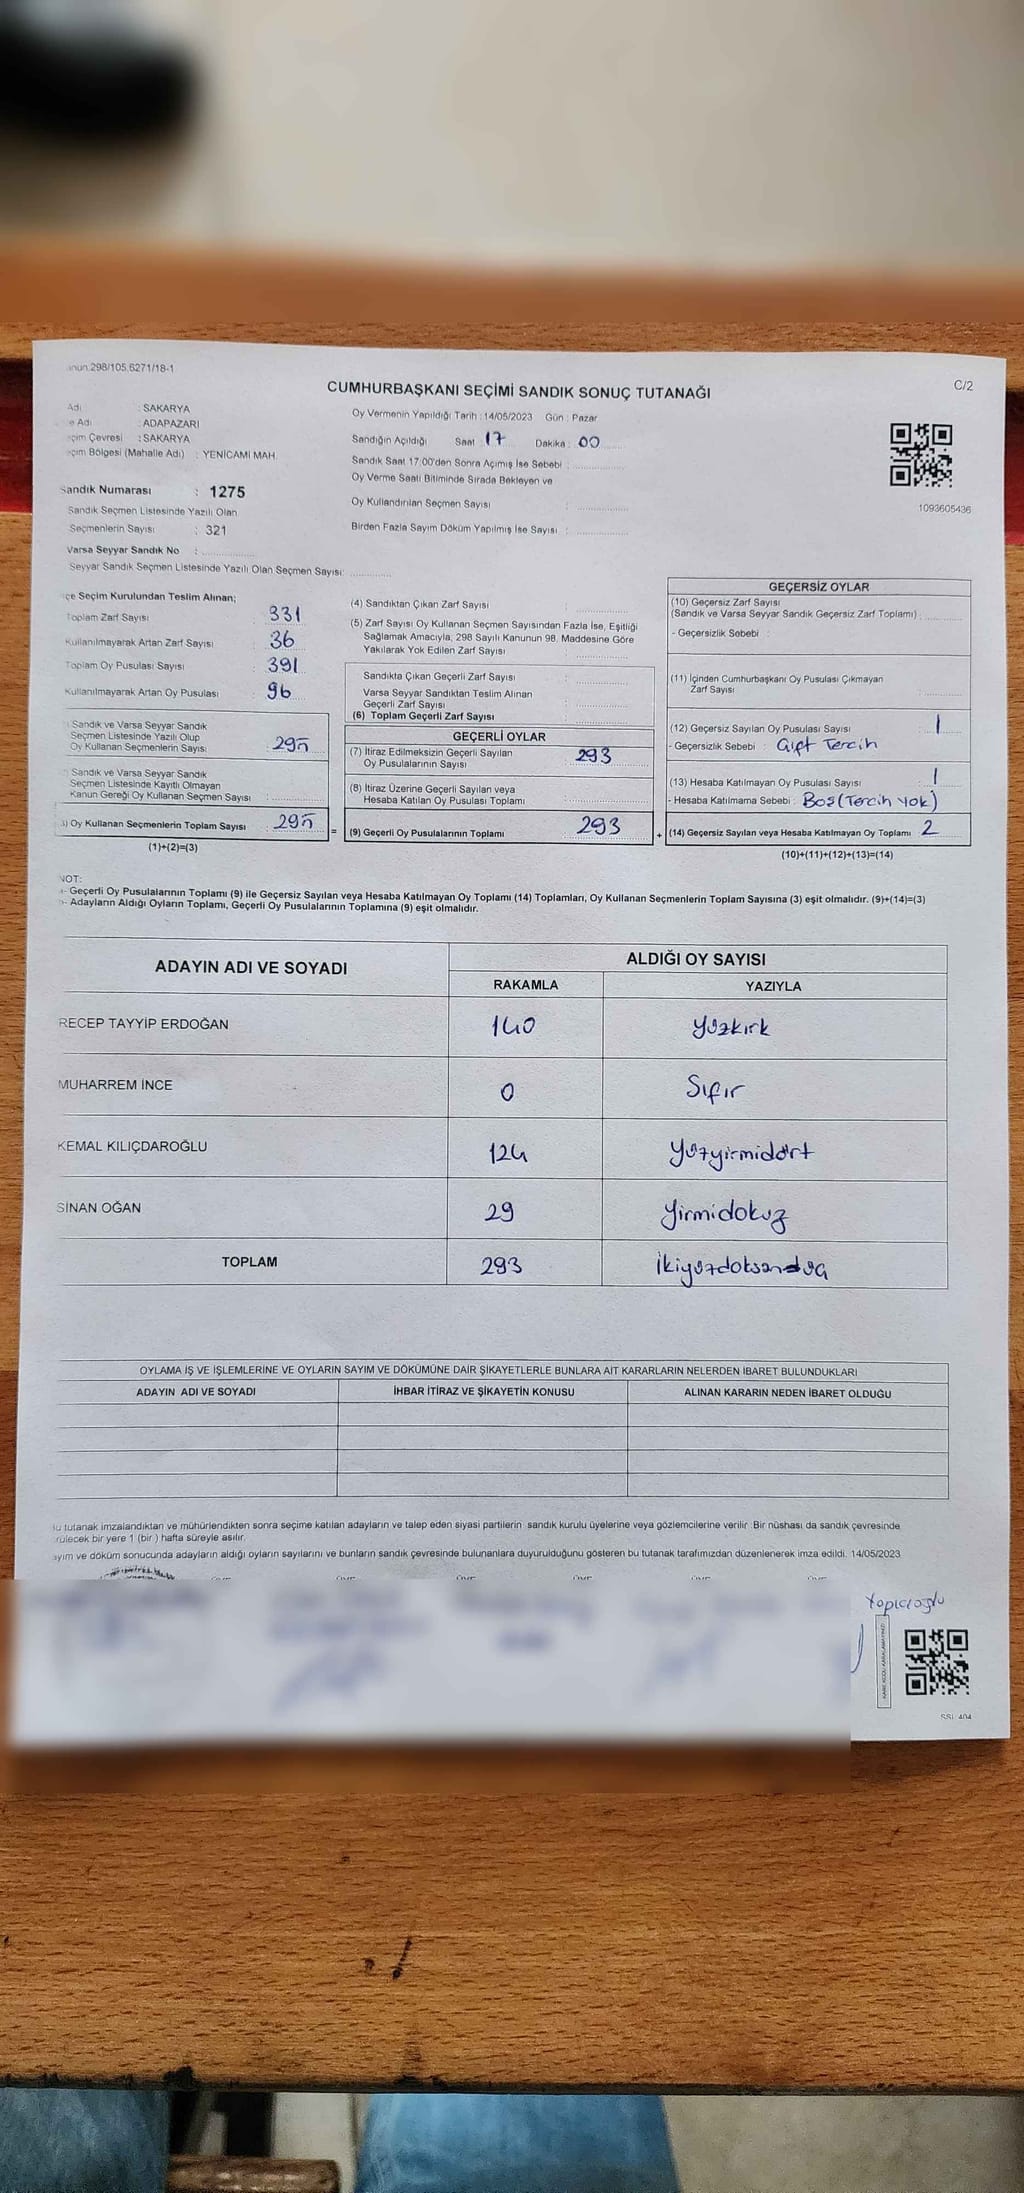 nun.298/105.6271/18-1
C/2
CUMHURBAŞKANI SEÇİMİ SANDIK SONUÇ TUTANAĞI
Adı : SAKARYA
e Adı : ADAPAZARI
çim Çevresi : SAKARYA
çim Bölgesi (Mahalle Adı) : YENİCAMİ MAH.
Sandık Numarası : 1275
Sandık Seçmen Listesinde Yazılı Olan
Seçmenlerin Sayısı : 321
Varsa Seyyar Sandık No :
Seyyar Sandık Seçmen Listesinde Yazılı Olan Seçmen Sayısı:
Oy Vermenin Yapıldığı Tarih : 14/05/2023 Gün : Pazar
Sandığın Açıldığı Saat 17 Dakika : 00
Sandık Saat 17:00'den Sonra Açımış İse Sebebi :
Oy Verme Saati Bitiminde Sırada Bekleyen ve
Oy Kullandırılan Seçmen Sayısı :
Birden Fazla Sayım Döküm Yapılmış İse Sayısı :
1093605436
çe Seçim Kurulundan Teslim Alınan;
Toplam Zarf Sayısı : 331
Kullanılmayarak Artan Zarf Sayısı : 36
Toplam Oy Pusulası Sayısı : 391
Kullanılmayarak Artan Oy Pusulası : 96
Sandık ve Varsa Seyyar Sandık
Seçmen Listesinde Yazılı Olup
Oy Kullanan Seçmenlerin Sayısı : 295
Sandık ve Varsa Seyyar Sandık
Seçmen Listesinde Kayıtlı Olmayan
Kanun Gereği Oy Kullanan Seçmen Sayısı :
) Oy Kullanan Seçmenlerin Toplam Sayısı : 295
(1)+(2)=(3)
(4) Sandıktan Çıkan Zarf Sayısı :
(5) Zarf Sayısı Oy Kullanan Seçmen Sayısından Fazla İse, Eşitliği
Sağlamak Amacıyla, 298 Sayılı Kanunun 98. Maddesine Göre
Yakılarak Yok Edilen Zarf Sayısı :
Sandıkta Çıkan Geçerli Zarf Sayısı :
Varsa Seyyar Sandıktan Teslim Alınan
Geçerli Zarf Sayısı :
(6) Toplam Geçerli Zarf Sayısı :
GEÇERLİ OYLAR
(7) İtiraz Edilmeksizin Geçerli Sayılan
Oy Pusulalarının Sayısı : 293
(8) İtiraz Üzerine Geçerli Sayılan veya
Hesaba Katılan Oy Pusulası Toplamı :
= (9) Geçerli Oy Pusulalarının Toplamı : 293
GEÇERSİZ OYLAR
(10) Geçersiz Zarf Sayısı
(Sandık ve Varsa Seyyar Sandık Geçersiz Zarf Toplamı) :
- Geçersizlik Sebebi :
(11) İçinden Cumhurbaşkanı Oy Pusulası Çıkmayan
Zarf Sayısı :
(12) Geçersiz Sayılan Oy Pusulası Sayısı : 1
- Geçersizlik Sebebi : Çift Tercih
(13) Hesaba Katılmayan Oy Pusulası Sayısı : 1
- Hesaba Katılmama Sebebi : Boş (Tercih Yok)
+ (14) Geçersiz Sayılan veya Hesaba Katılmayan Oy Toplamı 2
(10)+(11)+(12)+(13)=(14)
NOT:
- Geçerli Oy Pusulalarının Toplamı (9) ile Geçersiz Sayılan veya Hesaba Katılmayan Oy Toplamı (14) Toplamları, Oy Kullanan Seçmenlerin Toplam Sayısına (3) eşit olmalıdır. (9)+(14)=(3)
- Adayların Aldığı Oyların Toplamı, Geçerli Oy Pusulalarının Toplamına (9) eşit olmalıdır.
ADAYIN ADI VE SOYADI
ALDIĞI OY SAYISI
RAKAMLA YAZIYLA
RECEP TAYYİP ERDOĞAN 140 Yüzkırk
MUHARREM İNCE 0 Sıfır
KEMAL KILIÇDAROĞLU 124 Yüzyirmidört
SİNAN OĞAN 29 Yirmidokuz
TOPLAM 293 İkiyüzdoksan
OYLAMA İŞ VE İŞLEMLERİNE VE OYLARIN SAYIM VE DÖKÜMÜNE DAİR ŞİKAYETLERLE BUNLARA AİT KARARLARIN NELERDEN İBARET BULUNDUKLARI
ADAYIN ADI VE SOYADI İHBAR İTİRAZ VE ŞİKAYETİN KONUSU ALINAN KARARIN NEDEN İBARET OLDUĞU
u tutanak imzalandıktan ve mühürlendikten sonra seçime katılan adayların ve talep eden siyasi partilerin sandık kurulu üyelerine veya gözlemcilerine verilir. Bir nüshası da sandık çevresinde
rülecek bir yere 1 (bir ) hafta süreyle asılır.
ayım ve döküm sonucunda adayların aldığı oyların sayılarını ve bunların sandık çevresinde bulunanlara duyurulduğunu gösteren bu tutanak tarafımızdan düzenlenerek imza edildi. 14/05/2023
Yapıcıoğlu